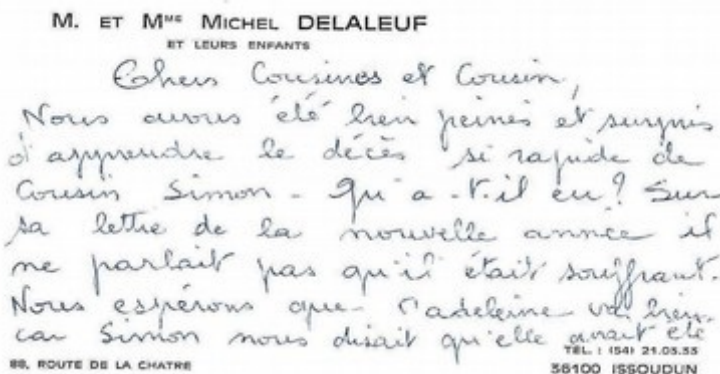 M. ET Mme MICHEL DELALEUF
ET LEURS ENFANTS
Chers Cousines et Cousin,
Nous avons été bien peinés et surpris
d'apprendre le décès si rapide de
Cousin Simon - Qu'a-t-il eu? Sur
sa lettre de la nouvelle année il
ne parlait pas qu'il était souffrant.
Nous espérons que Madeleine va bien.
car Simon nous disait qu'elle avait été
88, ROUTE DE LA CHATRE
TÉL. : (54) 21.03.55
36100 ISSOUDUN